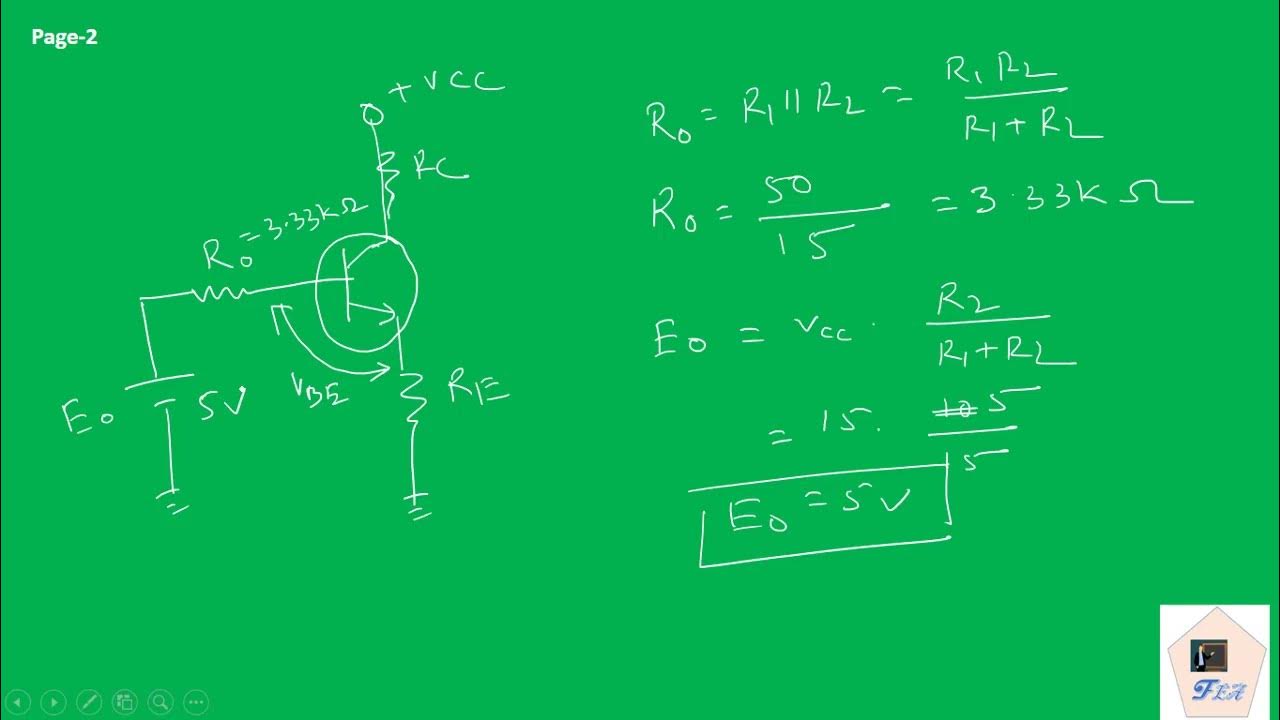 Page-2
+ VCC
RC
R₀ = 3.33kΩ
VBE
E₀ 5V
RE
R₀ = R₁ || R₂ = R₁ R₂ / R₁ + R₂
R₀ = 50 / 15 = 3.33k Ω
E₀ = Vcc · R₂ / R₁ + R₂
= 15 · 5 / 15
E₀ = 5V
FEA